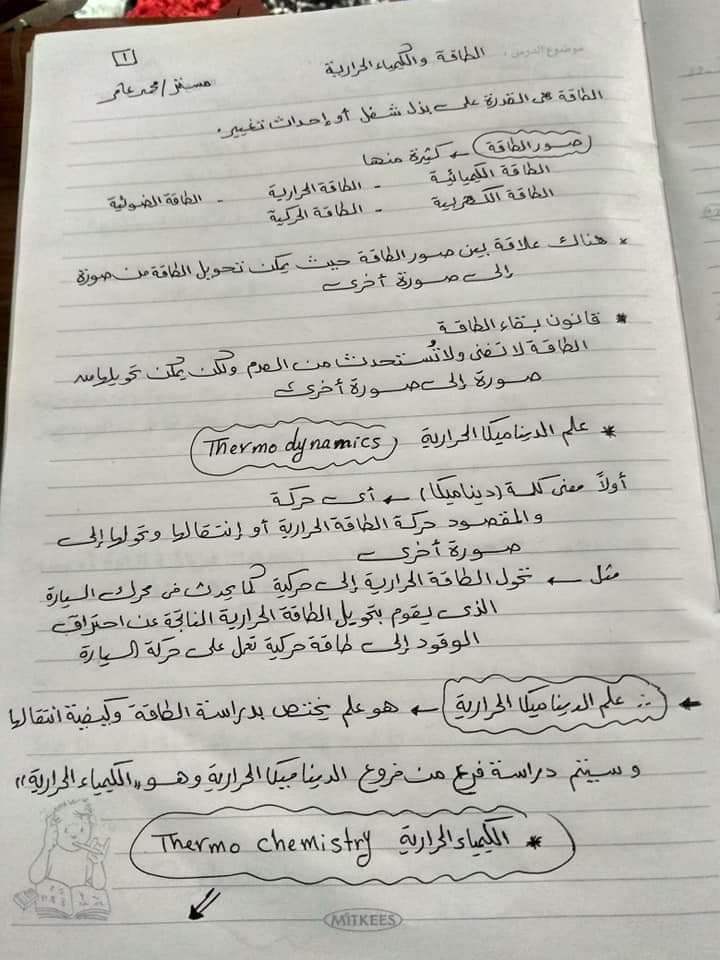 موضوع الدرس :
١
الطاقة والكيمياء الحرارية
مستر/ محمد عامر
الطاقة هى القدرة على بذل شغل أو إحداث تغيير.
صور الطاقة ← كثيرة منها
الطاقة الكيميائية - الطاقة الحرارية - الطاقة الضوئية
الطاقة الكهربية - الطاقة الحركية
* هناك علاقة بين صور الطاقة حيث يمكن تحويل الطاقة من صورة
إلى صورة أخرى
* قانون بقاء الطاقة
الطاقة لا تفنى ولا تُستحدث من العدم ولكن يمكن تحويلها من
صورة إلى صورة أخرى
* علم الديناميكا الحرارية Thermo dynamics
أولاً معنى كلمة (ديناميكا) ← أى حركة
والمقصود حركة الطاقة الحرارية أو إنتقالها وتحولها إلى
صورة أخرى
مثل ← تحول الطاقة الحرارية إلى حركية كما يحدث فى محرك السيارة
الذى يقوم بتحويل الطاقة الحرارية الناتجة عن احتراق
الوقود إلى طاقة حركية تعمل على حركة السيارة
← ∴ علم الديناميكا الحرارية ← هو علم يختص بدراسة الطاقة وكيفية انتقالها
وسيتم دراسة فرع من فروع الديناميكا الحرارية وهو "الكيمياء الحرارية"
* الكيمياء الحرارية Thermo chemistry
MITKEES